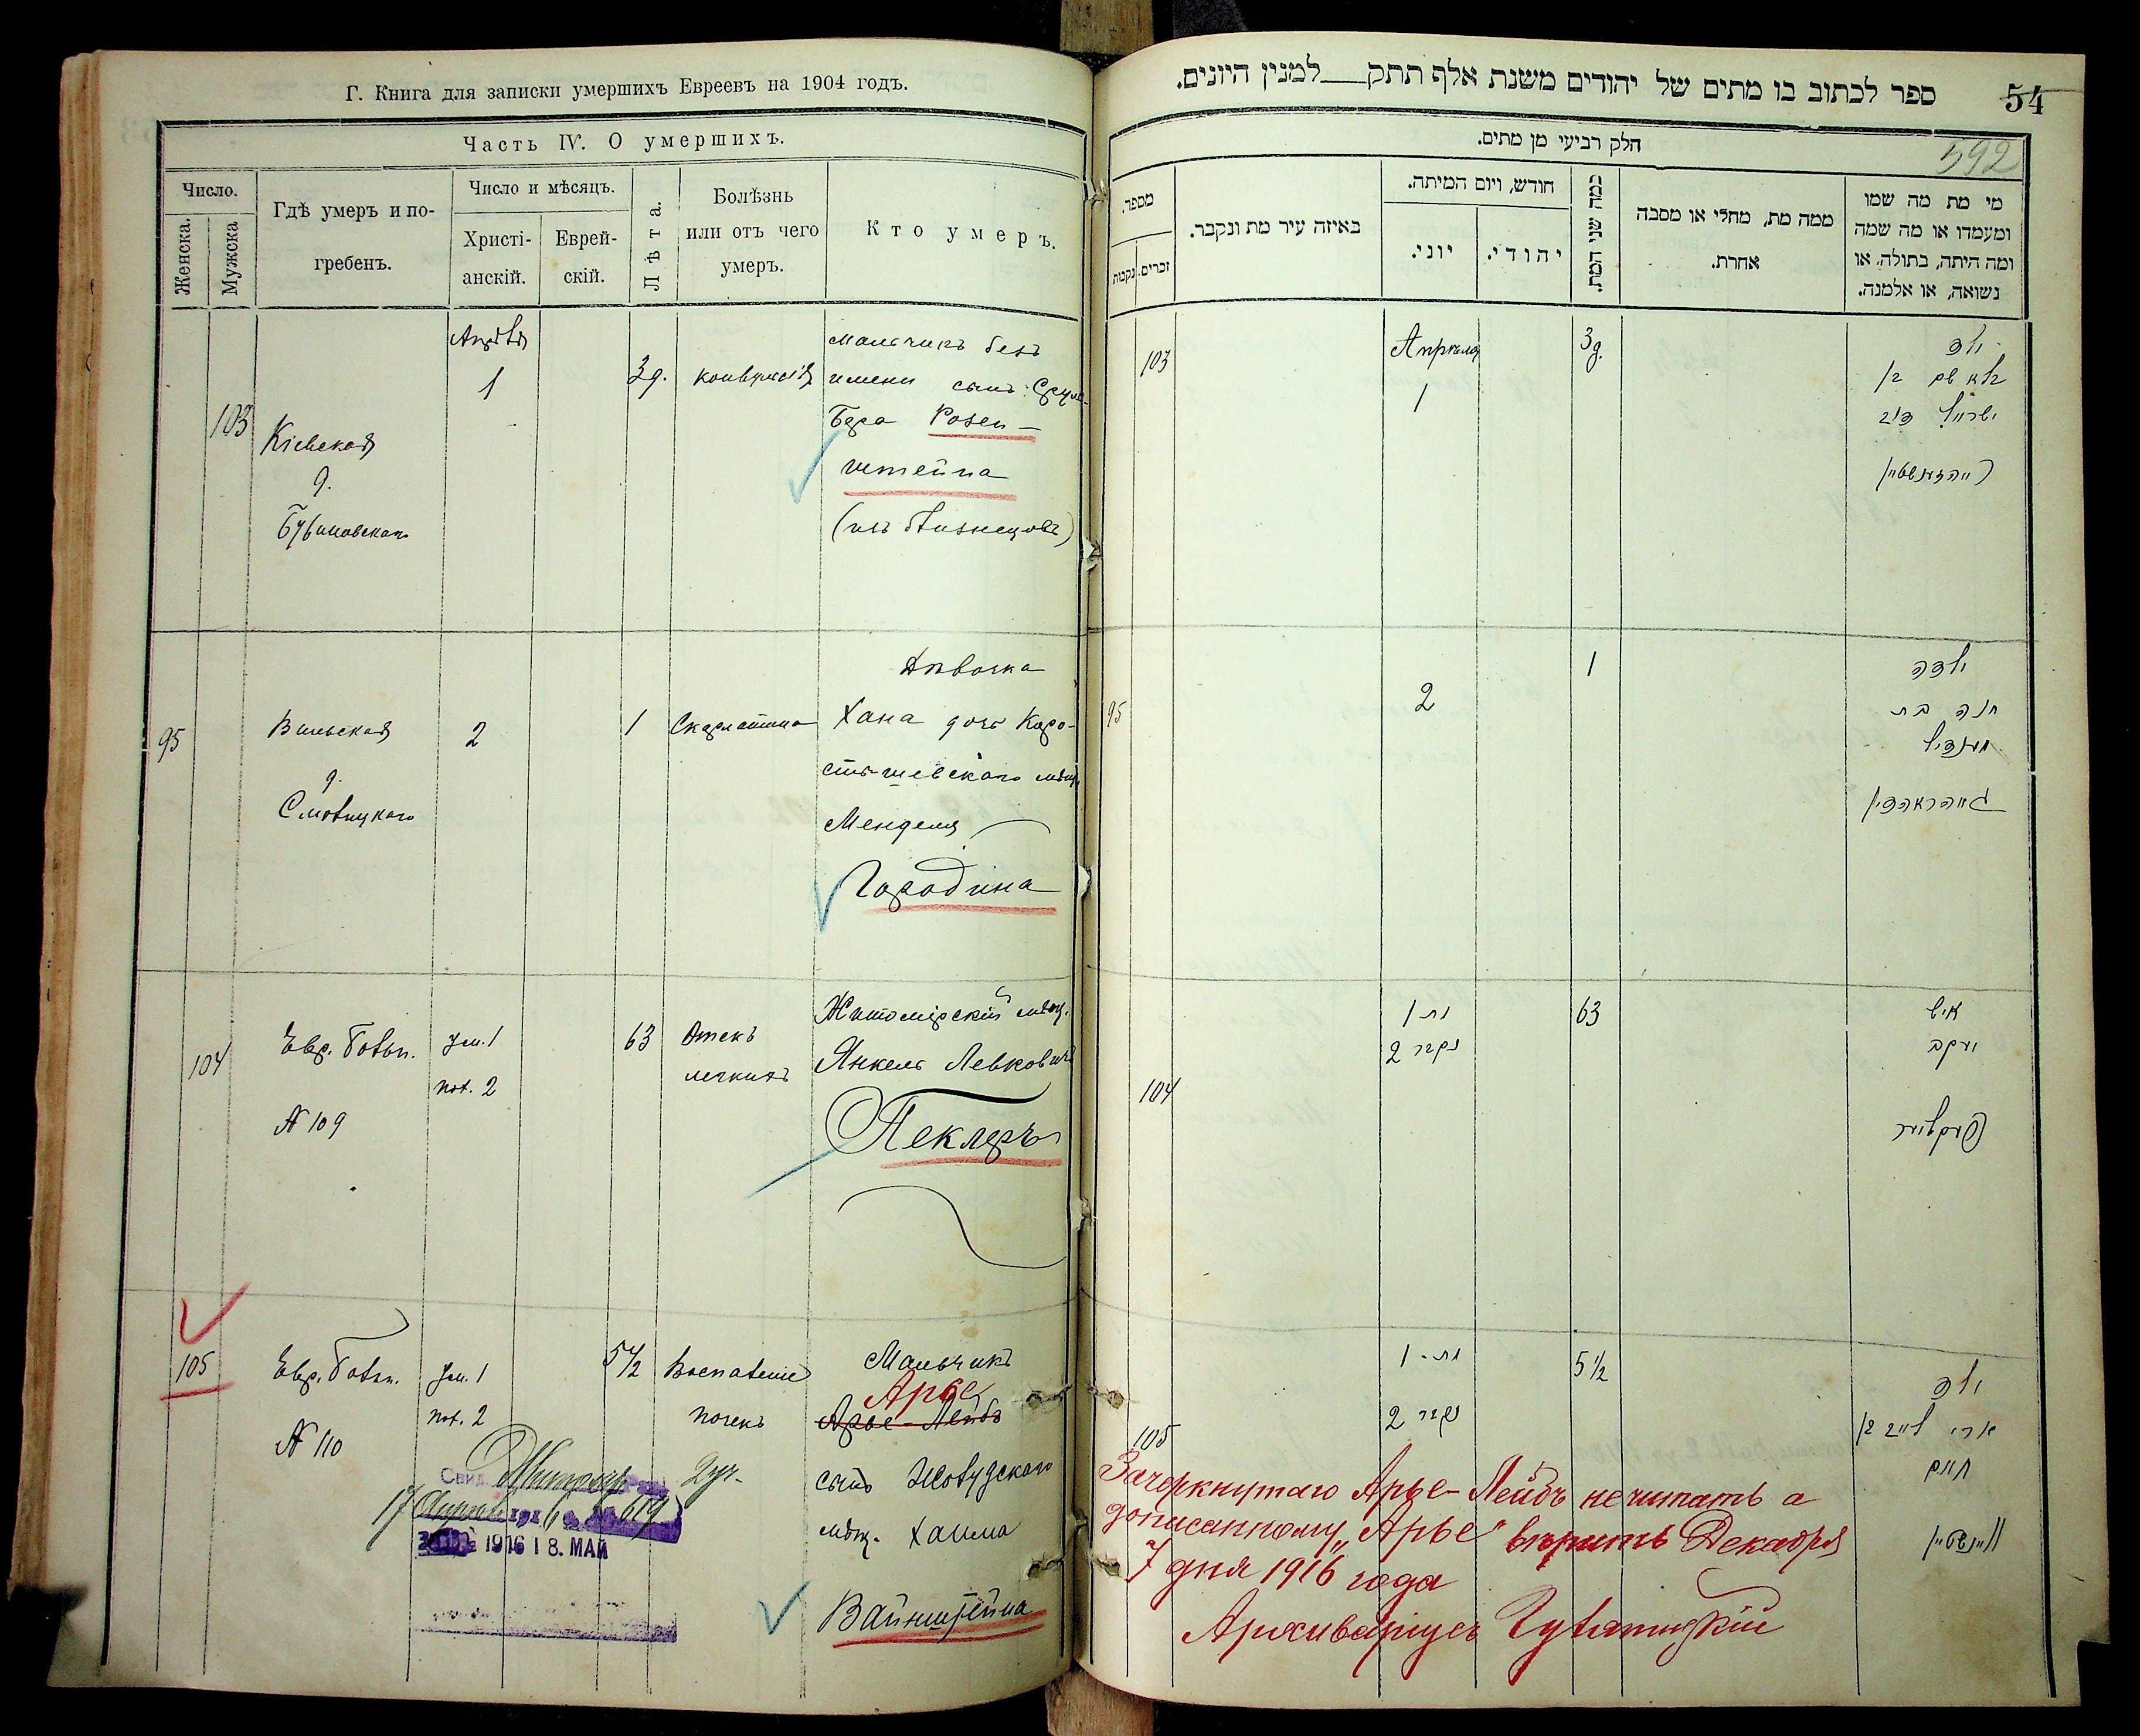 Г. Книга для записки умершихъ Евреевъ на 1904 годъ.
Часть IV. О умершихъ.
Число.
Женска.
Мужска
Гдѣ умеръ и по-
гребенъ.
Число и мѣсяцъ.
Христі-
анскій.
Еврей-
скій.
Лѣта.
Болѣзнь
или отъ чего
умеръ.
Кто умеръ.
103
Кіевская
д.
Апрѣля
1
3 д.
мальчикъ безъ
имени сынъ Сруль-
Бера Розен-
штейна
95
Вильская
д.
2
1
Скарлатина
Дѣвочка
Хана дочь Коро-
стышевскаго мѣщ.
Менделя
Городина
104
Евр. больн.
№ 109
Ум. 1
пог. 2
63
Отекъ
легкихъ
Житомірскій мѣщ.
Янкель Левковичъ
Пеклеръ
105
Евр. больн.
№ 110
Ум. 1
пог. 2
5 1/2
Воспаленіе
почекъ
Мальчикъ
Арье
Арье-Лейбъ
сынъ
мѣщ. Хаима
Вайнштейна
17 Апрѣля 1916 № 619
1916 18. МАЙ
ספר לכתוב בו מתים של יהודים משנת אלף תתק___למנין היונים.
54
592
חלק רביעי מן מתים.
מספר.
זכרים.
נקבות
באיזה עיר מת ונקבר.
חודש, ויום המיתה.
יוני.
יהודי.
כמה שני המת.
ממה מת, מחלי או מסבה
אחרת.
מי מת מה שמו
ומעמדו או מה שמה
ומה היתה, בתולה, או
נשואה, או אלמנה.
103
Апрѣля
1
3 д.
ילד
בלא שם בן
ישראל בער
95
2
1
ילדה
חנה בת
מענדיל
104
מת 1
נקבר 2
63
איש
יעקב
פעקליער
105
מת 1
נקבר 2
5 1/2
ילד
ארי לייב בן
חיים
וויינשטיין
Зачеркнутаго Арье-Лейбъ не читать а
дописанному „Арье" вѣрить Декабря
7 дня 1916 года
Архиваріусъ